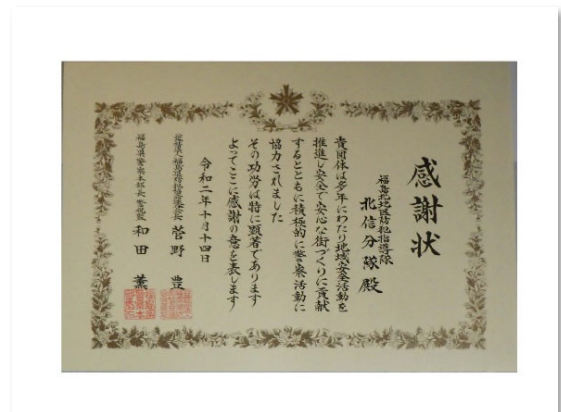 感謝状
福島北地区防犯指導隊
北信分隊殿
貴団体は多年にわたり地域安全活動を
推進し安全で安心な街づくりに貢献
するとともに積極的に警察活動に
協力されました
その功労は特に顕著であります
よってここに感謝の意を表します
令和二年十月十四日
菅野 豊
福島県警察本部長 警視長 和田 薫